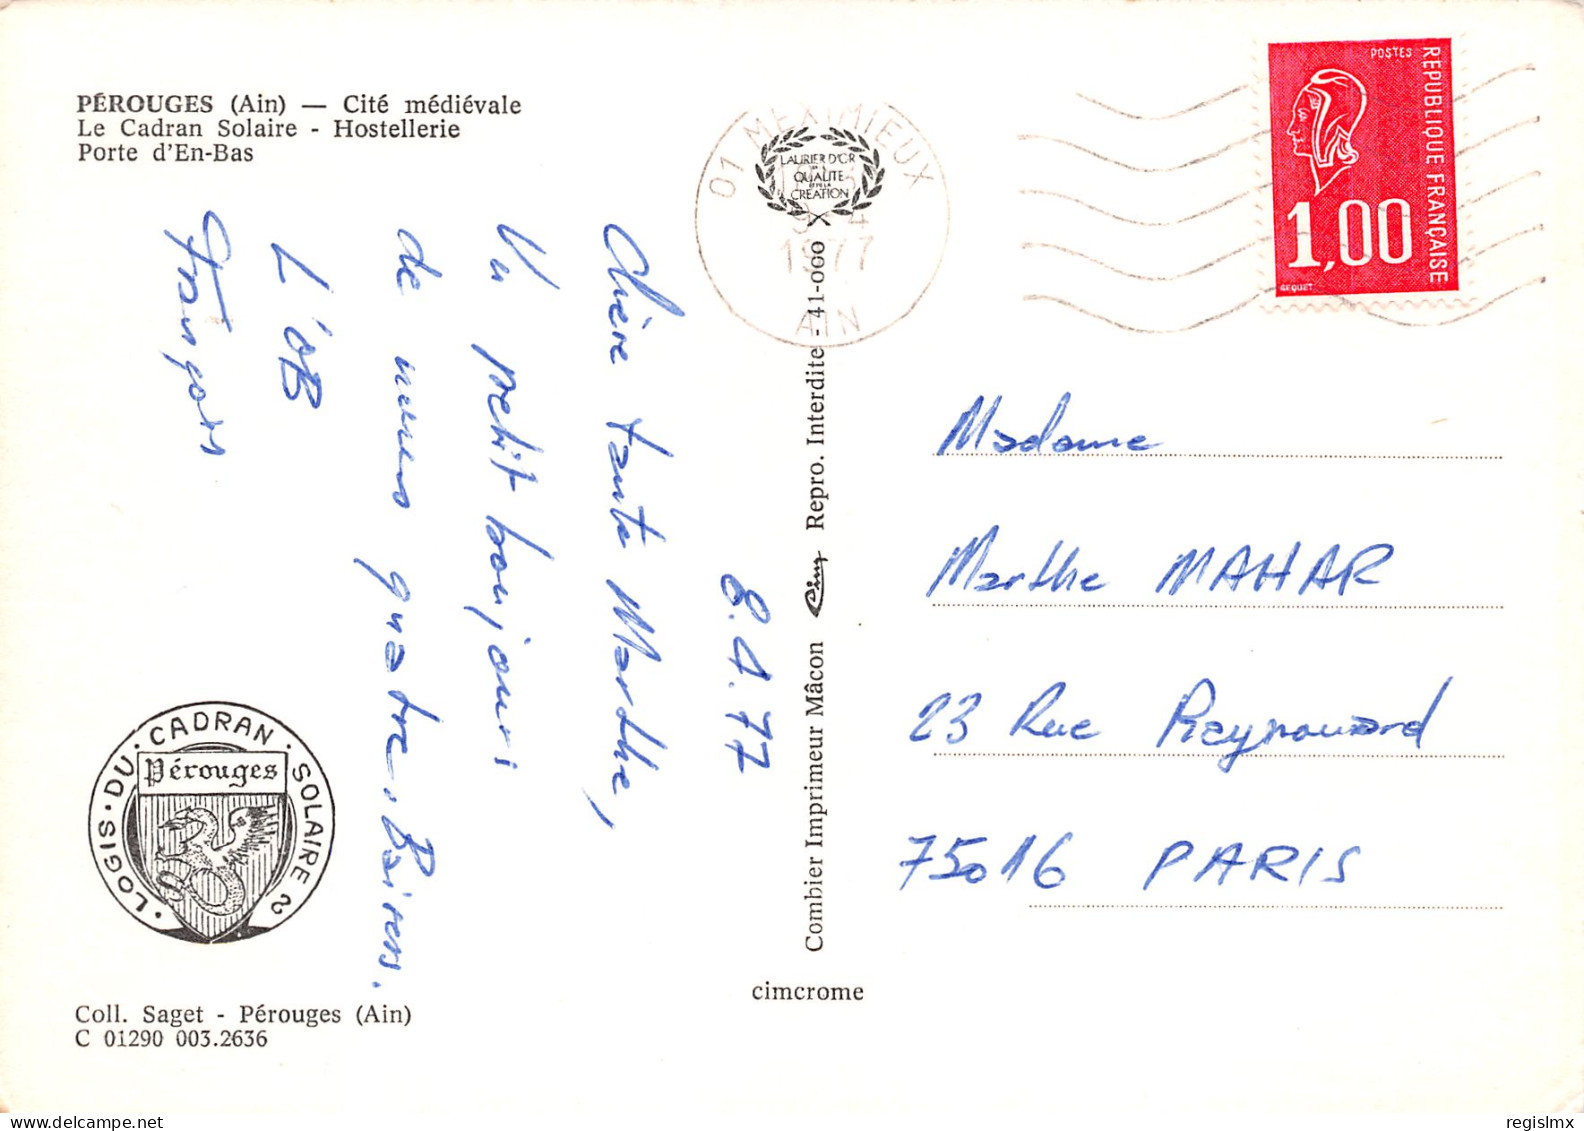 PÉROUGES (Ain) — Cité médiévale
Le Cadran Solaire - Hostellerie
Porte d'En-Bas
8.4.77
Chère tante Marthe,
Un petit bonjour
de nous quatre. Baisers.
François
LOGIS · DU · CADRAN · SOLAIRE
Pérouges
Coll. Saget - Pérouges (Ain)
C 01290 003.2636
Combier Imprimeur Mâcon Cim Repro. Interdite - 41-000
cimcrome
LAURIER D'OR
QUALITE
ET DE LA
CREATION
01 MEXIMIEUX
9 - 4
1977
AIN
POSTES
REPUBLIQUE FRANÇAISE
1,00
BEQUET
Madame
Marthe MAHAR
23 Rue Raynouard
75016 PARIS
regislmx